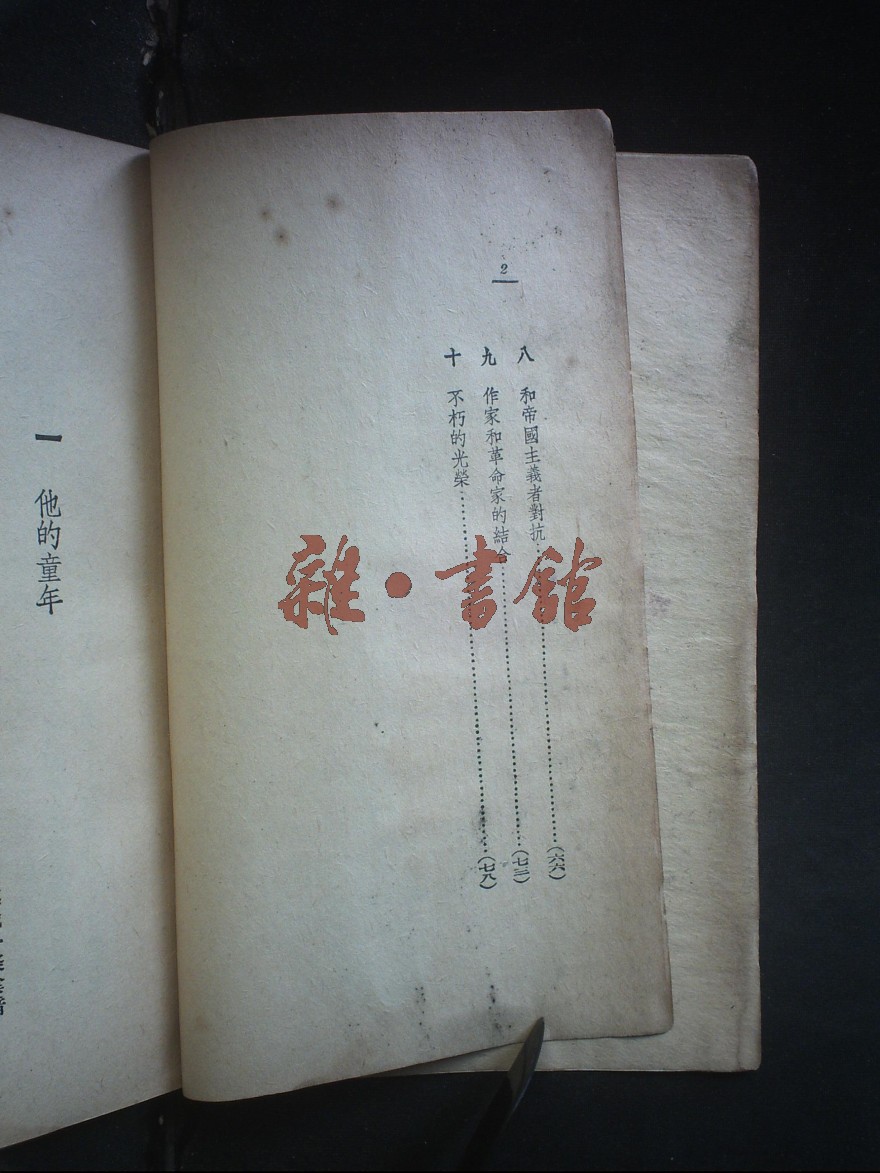 2
八 和帝國主義者對抗……(六六)
九 作家和革命家的結合……(七三)
十 不朽的光榮……(七八)
一 他的童年
雜·書館